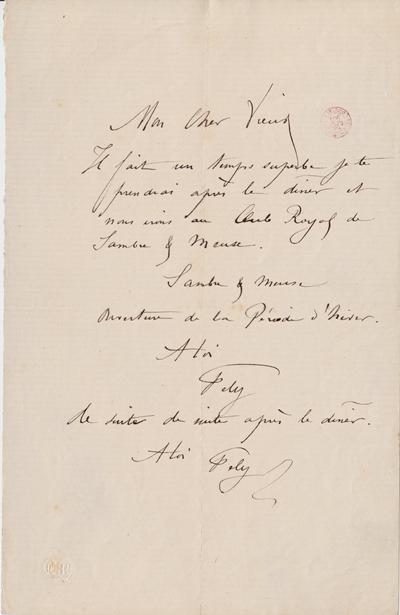 Mon Cher Vieux
Il fait un temps superbe je te
prendrai après le dîner et
nous irons au Club Royal de
Sambre & Meuse.
Sambre & Meuse
Ouverture de la Période d'hiver.
A toi
Fély
De suite de suite après le dîner.
A toi Fély